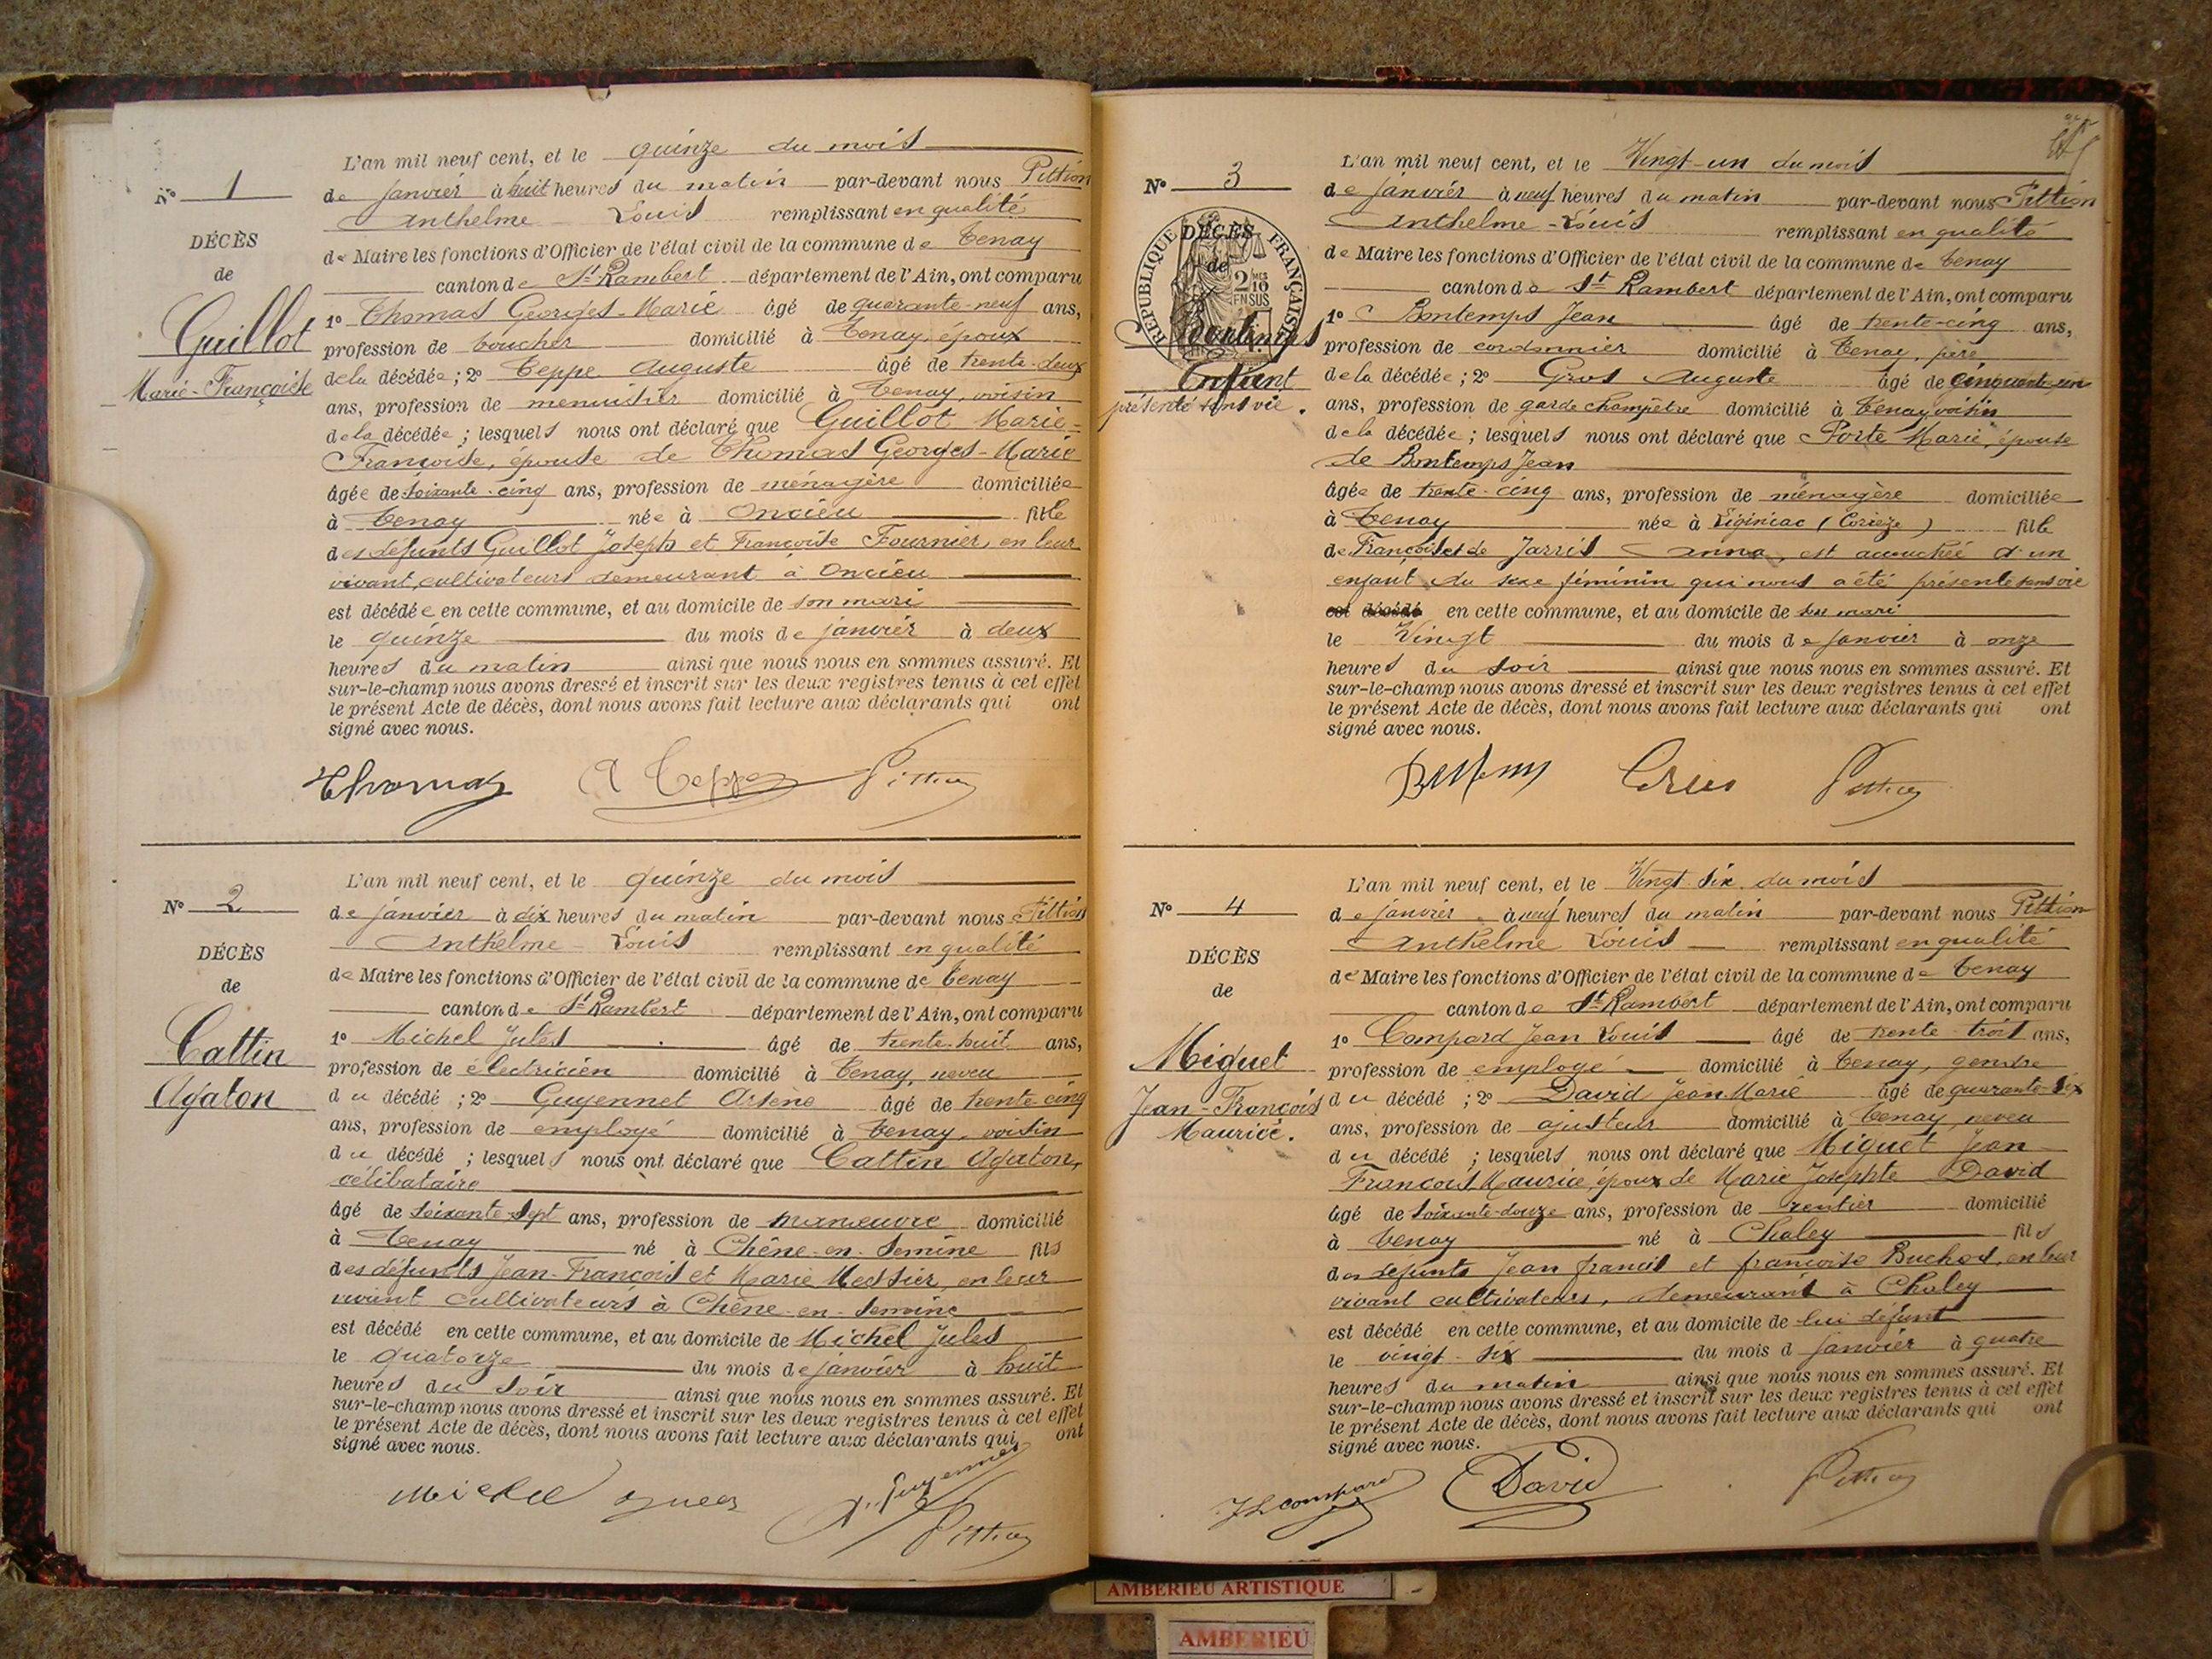 L'an mil neuf cent, et le quinze du mois
N° 1
de janvier à huit heures du matin par-devant nous Pittion
Anthelme Louis remplissant en qualité
DÉCÈS
de Maire les fonctions d'Officier de l'état civil de la commune de Tenay
de
canton de St Rambert département de l'Ain, ont comparu
Guillot
1° Thomas Georges-Marie âgé de quarante-neuf ans,
profession de boucher domicilié à Tenay, époux
Marie-Françoise
de la décédée ; 2° Teppe Auguste âgé de trente-deux
ans, profession de menuisier domicilié à Tenay, voisin
de la décédée ; lesquels nous ont déclaré que Guillot Marie-
Françoise, épouse de Thomas Georges-Marie
âgée de soixante-cinq ans, profession de ménagère domiciliée
à Tenay née à Oncieu fille
des défunts Guillot Joseph et Françoise Fournier, en leur
vivant, cultivateurs demeurant à Oncieu
est décédée en cette commune, et au domicile de son mari
le quinze du mois de janvier à deux
heures du matin ainsi que nous nous en sommes assuré. Et
sur-le-champ nous avons dressé et inscrit sur les deux registres tenus à cet effet
le présent Acte de décès, dont nous avons fait lecture aux déclarants qui ont
signé avec nous.
Thomas A Teppe Pittion
L'an mil neuf cent, et le quinze du mois
N° 2
de janvier à dix heures du matin par-devant nous Pittion
Anthelme-Louis remplissant en qualité
DÉCÈS
de Maire les fonctions d'Officier de l'état civil de la commune de Tenay
de
canton de St Rambert département de l'Ain, ont comparu
Cattin
1° Michel Jules âgé de trente-huit ans,
profession de électricien domicilié à Tenay, neveu
Agaton
du décédé ; 2° Guyennet Arsène âgé de trente cinq
ans, profession de employé domicilié à Tenay, voisin
du décédé ; lesquels nous ont déclaré que Cattin Agaton,
célibataire
âgé de soixante-sept ans, profession de manœuvre domicilié
à Tenay né à Chêne-en-Semine fils
des défunts Jean-François et Marie Messier, en leur
vivant cultivateurs à Chêne-en-Semine
est décédé en cette commune, et au domicile de Michel Jules
le quatorze du mois de janvier à huit
heures du soir ainsi que nous nous en sommes assuré. Et
sur-le-champ nous avons dressé et inscrit sur les deux registres tenus à cet effet
le présent Acte de décès, dont nous avons fait lecture aux déclarants qui ont
signé avec nous.
Michel A. Guyennet
Pittion
L'an mil neuf cent, et le Vingt-un du mois
N° 3
de janvier à neuf heures du matin par-devant nous Pittion
Anthelme-Louis remplissant en qualité
RÉPUBLIQUE FRANÇAISE
DÉCÈS
de Maire les fonctions d'Officier de l'état civil de la commune de Tenay
de
2/10 EN SUS
canton de St Rambert département de l'Ain, ont comparu
Bontemps
1° Bontemps Jean âgé de trente-cinq ans,
profession de cordonnier domicilié à Tenay, père
Enfant
de la décédée ; 2° Gros Auguste âgé de cinquante-un
présenté sans vie.
ans, profession de garde champêtre domicilié à Tenay, voisin
de la décédée ; lesquels nous ont déclaré que Porte Marie, épouse
de Bontemps Jean
âgée de trente-cinq ans, profession de ménagère domiciliée
à Tenay née à Liginiac (Corrèze) fille
de François et de Jarris Anna, est accouchée d'un
enfant du sexe féminin qui nous a été présenté sans vie
est décédé en cette commune, et au domicile de son mari
le Vingt du mois de janvier à onze
heures du soir ainsi que nous nous en sommes assuré. Et
sur-le-champ nous avons dressé et inscrit sur les deux registres tenus à cet effet
le présent Acte de décès, dont nous avons fait lecture aux déclarants qui ont
signé avec nous.
Gros Pittion
L'an mil neuf cent, et le Vingt-six du mois
N° 4
de janvier à neuf heures du matin par-devant nous Pittion
Anthelme Louis remplissant en qualité
DÉCÈS
de Maire les fonctions d'Officier de l'état civil de la commune de Tenay
de
canton de St Rambert département de l'Ain, ont comparu
Miguet
1° Compard Jean Louis âgé de trente-trois ans,
profession de employé domicilié à Tenay, gendre
Jean-François
du décédé ; 2° David Jean-Marie âgé de quarante-six
Maurice.
ans, profession de ajusteur domicilié à Tenay, neveu
du décédé ; lesquels nous ont déclaré que Miguet Jean
François Maurice, époux de Marie Josephte David
âgé de soixante-douze ans, profession de rentier domicilié
à Tenay né à Chaley fils
des défunts Jean françois et françoise Buchod, en leur
vivant cultivateurs, demeurant à Chaley
est décédé en cette commune, et au domicile de lui défunt
le vingt-six du mois d janvier à quatre
heures du matin ainsi que nous nous en sommes assuré. Et
sur-le-champ nous avons dressé et inscrit sur les deux registres tenus à cet effet
le présent Acte de décès, dont nous avons fait lecture aux déclarants qui ont
signé avec nous.
JL compard David Pittion
AMBERIEU ARTISTIQUE
AMBERIEU